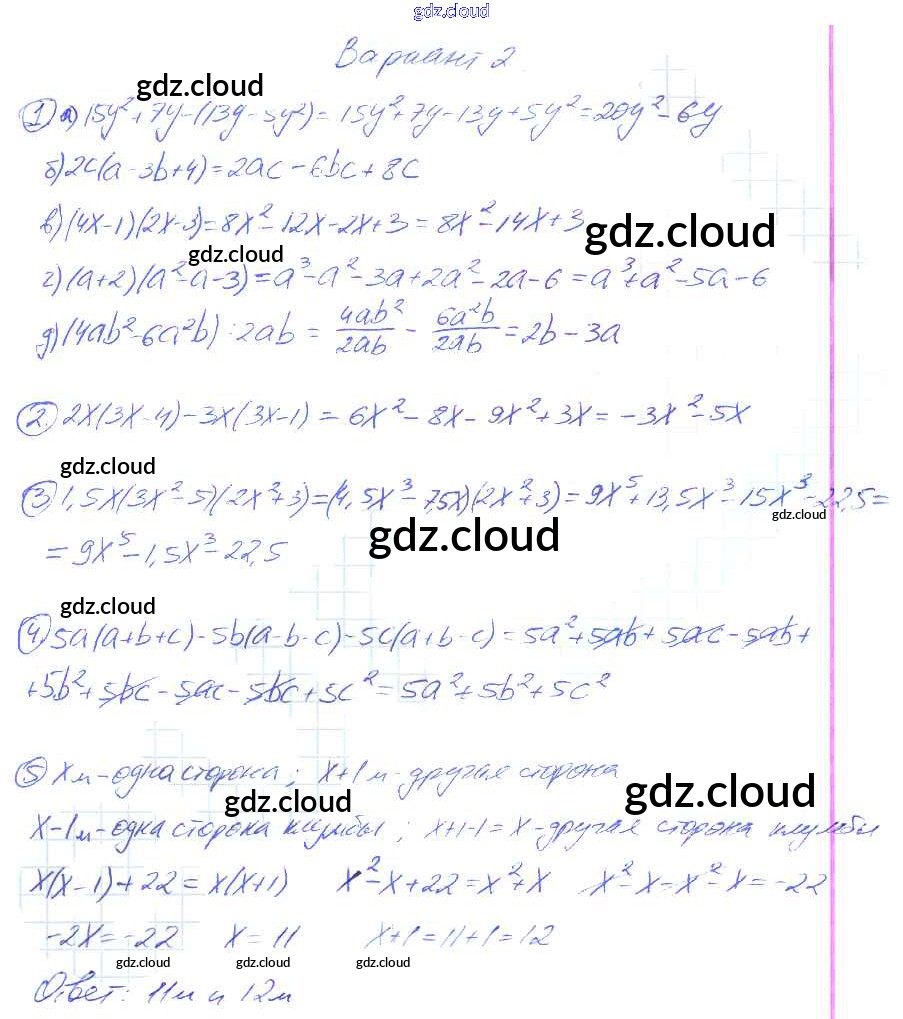 gdz.cloud
Вариант 2
gdz.cloud
① а) 15y²+7y-(13y-5y²)= 15y²+7y-13y+5y²=20y²-6y
б) 2c(a-3b+4)=2ac-6bc+8c
в) (4x-1)(2x-3)=8x²-12x-2x+3=8x²-14x+3
gdz.cloud
gdz.cloud
г) (a+2)(a²-a-3)=a³-a²-3a+2a²-2a-6=a³+a²-5a-6
д) (4ab²-6a²b):2ab = 4ab²/2ab - 6a²b/2ab = 2b-3a
② 2x(3x-4)-3x(3x-1)=6x²-8x-9x²+3x=-3x²-5x
gdz.cloud
③ 1,5x(3x²-5)(2x²+3)=(4,5x³-7,5x)(2x²+3)=9x⁵+13,5x³-15x³-22,5=
gdz.cloud
gdz.cloud
=9x⁵-1,5x³-22,5
gdz.cloud
④ 5a(a+b+c)-5b(a-b-c)-5c(a+b-c)=5a²+5ab+5ac-5ab+
+5b²+5bc-5ac-5bc+5c²=5a²+5b²+5c²
⑤ x м-одна сторона; x+1 м-другая сторона
gdz.cloud
gdz.cloud
x-1 м-одна сторона клумбы; x+1-1=x-другая сторона клумбы
x(x-1)+22=x(x+1) x²-x+22=x²+x x²-x=x²-x=-22
-2x=-22 x=11 x+1=11+1=12
gdz.cloud gdz.cloud gdz.cloud
Ответ: 11м и 12м